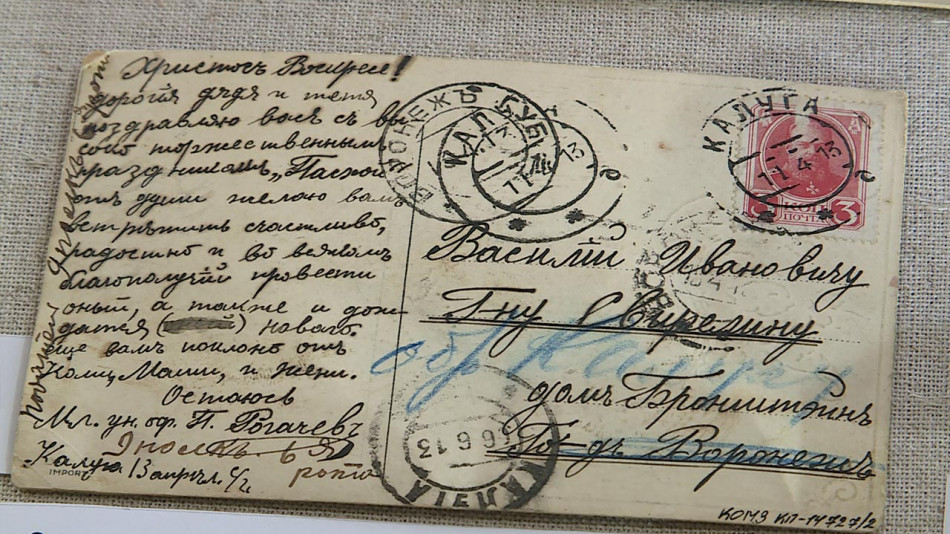 Христосъ Воскресе!
дорогія дядя и тетя
поздравляю васъ съ вы
соко торжественнымъ
праздникомъ „Пасхой
отъ души желаю вамъ
встрѣтить счастливо,
радостно и во всякомъ
благополучіи провести
оный, а также и дож
датся новаго.
еще вамъ поклонъ отъ
Коли, Мани, и Жени.
Остаюсь
Мл. ун. оф. П. Рогачевъ
6я
рота
Калуга 13 апрѣл. с/г.
IMPORT
ВОРОНЕЖЪ
КАЛУГА
11 4 13
КАЛУГА
11 4 13
3 ПОЧТ 3
Василій Ивановичу
Г-ну Свирелину
обр Калуга
домъ Бронштейнъ
Го-дъ Воронежъ
16 6 13
КАЛУГА
КОМЗ КП-14727/2